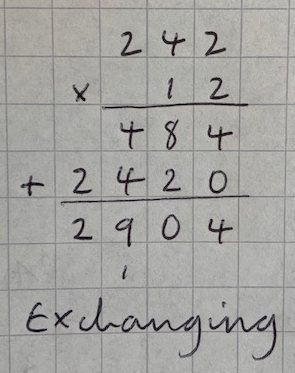 242
x 12
484
+ 2420
2904
1
Exchanging